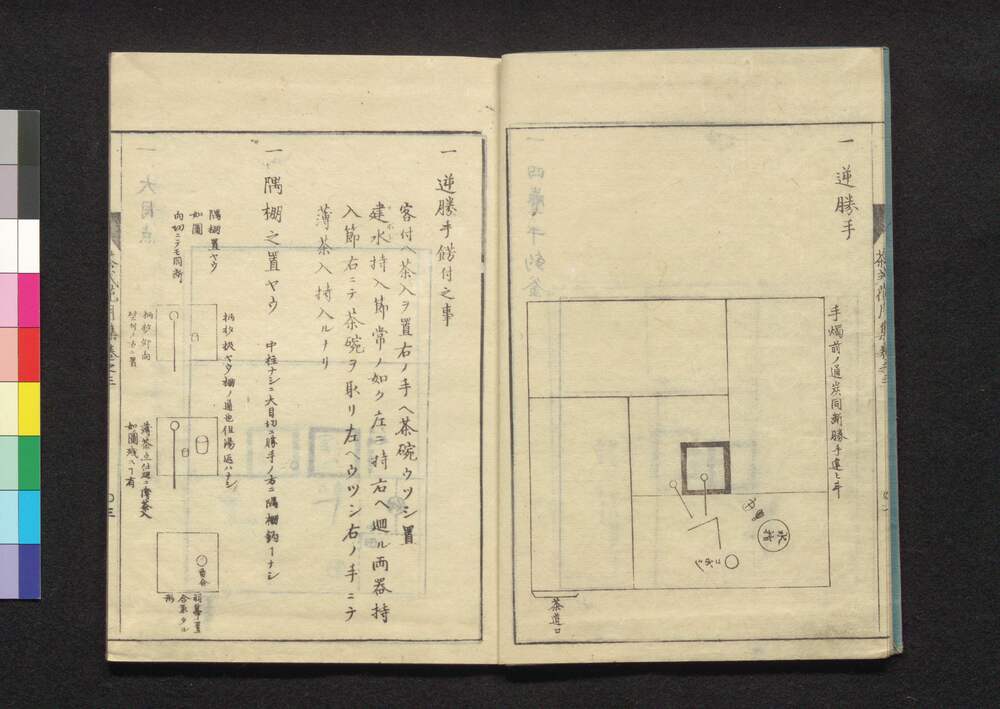 一 逆勝手
手燭前ノ通炭同断勝手違ヒ斗
水指
茶道口
一 逆勝手錺付之事
客付ヘ茶入ヲ置右ノ手ヘ茶碗ウツシ置
建水持入節常ノ如ク左ニ持右ヘ廻ル両器持
入節右ニテ茶碗ヲ取リ左ヘウツシ右ノ手ニテ
薄茶入持入ルナリ
一 隅棚之置ヤウ
中柱ナシニ大目切ニ勝手ノ方ニ隅棚釣ヿナシ
隅棚置ヤウ
如圖
向切ニテモ同断
柄杓扱ヤウ棚ノ通也但湯返ハナシ
柄杓仰向
薄茶点仕廻ニ薄茶入
如圖残ヘ有
香合
羽箒置
合東タル
形